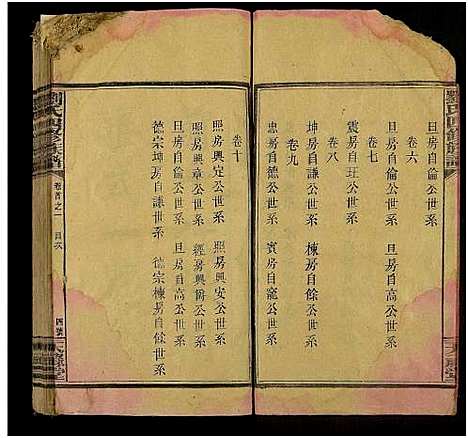 劉氏四修族譜
卷六
旦房自倫公世系　旦房自高公世系
卷七
震房自玨公世系
卷八
坤房自謙公世系　棟房自餘公世系
卷九
忠房自德公世系　賓房自寵公世系
卷十
照房興定公世系　照房興安公世系
照房興章公世系　經房興尚公世系
旦房自倫公世系　旦房自高公世系
德宗坤房自謙世系　德宗棟房自餘世系
劉氏四修族譜
卷首之一　目次
四號